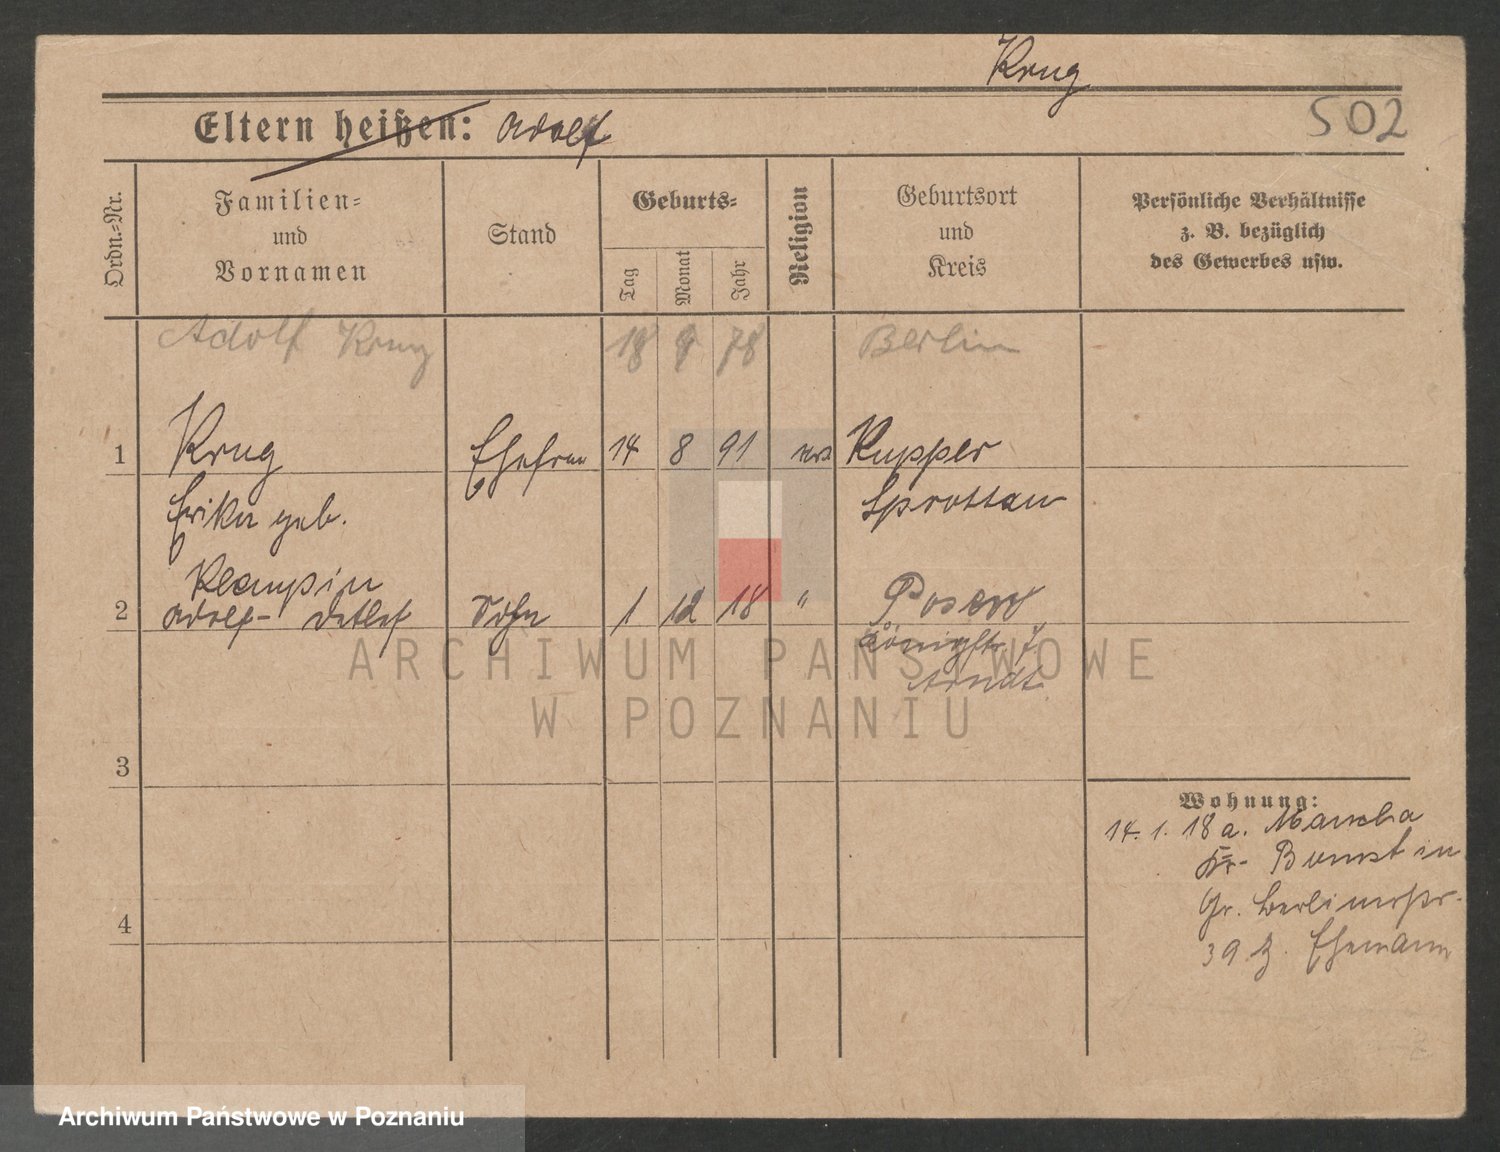 Krug
Eltern heißen: Adolf
502
Ordn.-Nr.
Familien-
und
Vornamen
Stand
Geburts-
Tag
Monat
Jahr
Religion
Geburtsort
und
Kreis
Persönliche Verhältnisse
z. B. bezüglich
des Gewerbes usw.
Adolf Krug 18 9 78 Berlin
1 Krug Ehefrau 14 8 91 Kupper
Erika geb. Sprottau
Klempin
2 Adolf- Detlef Sohn 1 12 18 " Posen
Königstr. 7
Arndt
3
4
Wohnung:
14. 1. 18 a.
Kr. Bomst in
Gr. Berlinerstr.
39 z. Ehemann
ARCHIWUM PAŃSTWOWE
W POZNANIU
Archiwum Państwowe w Poznaniu